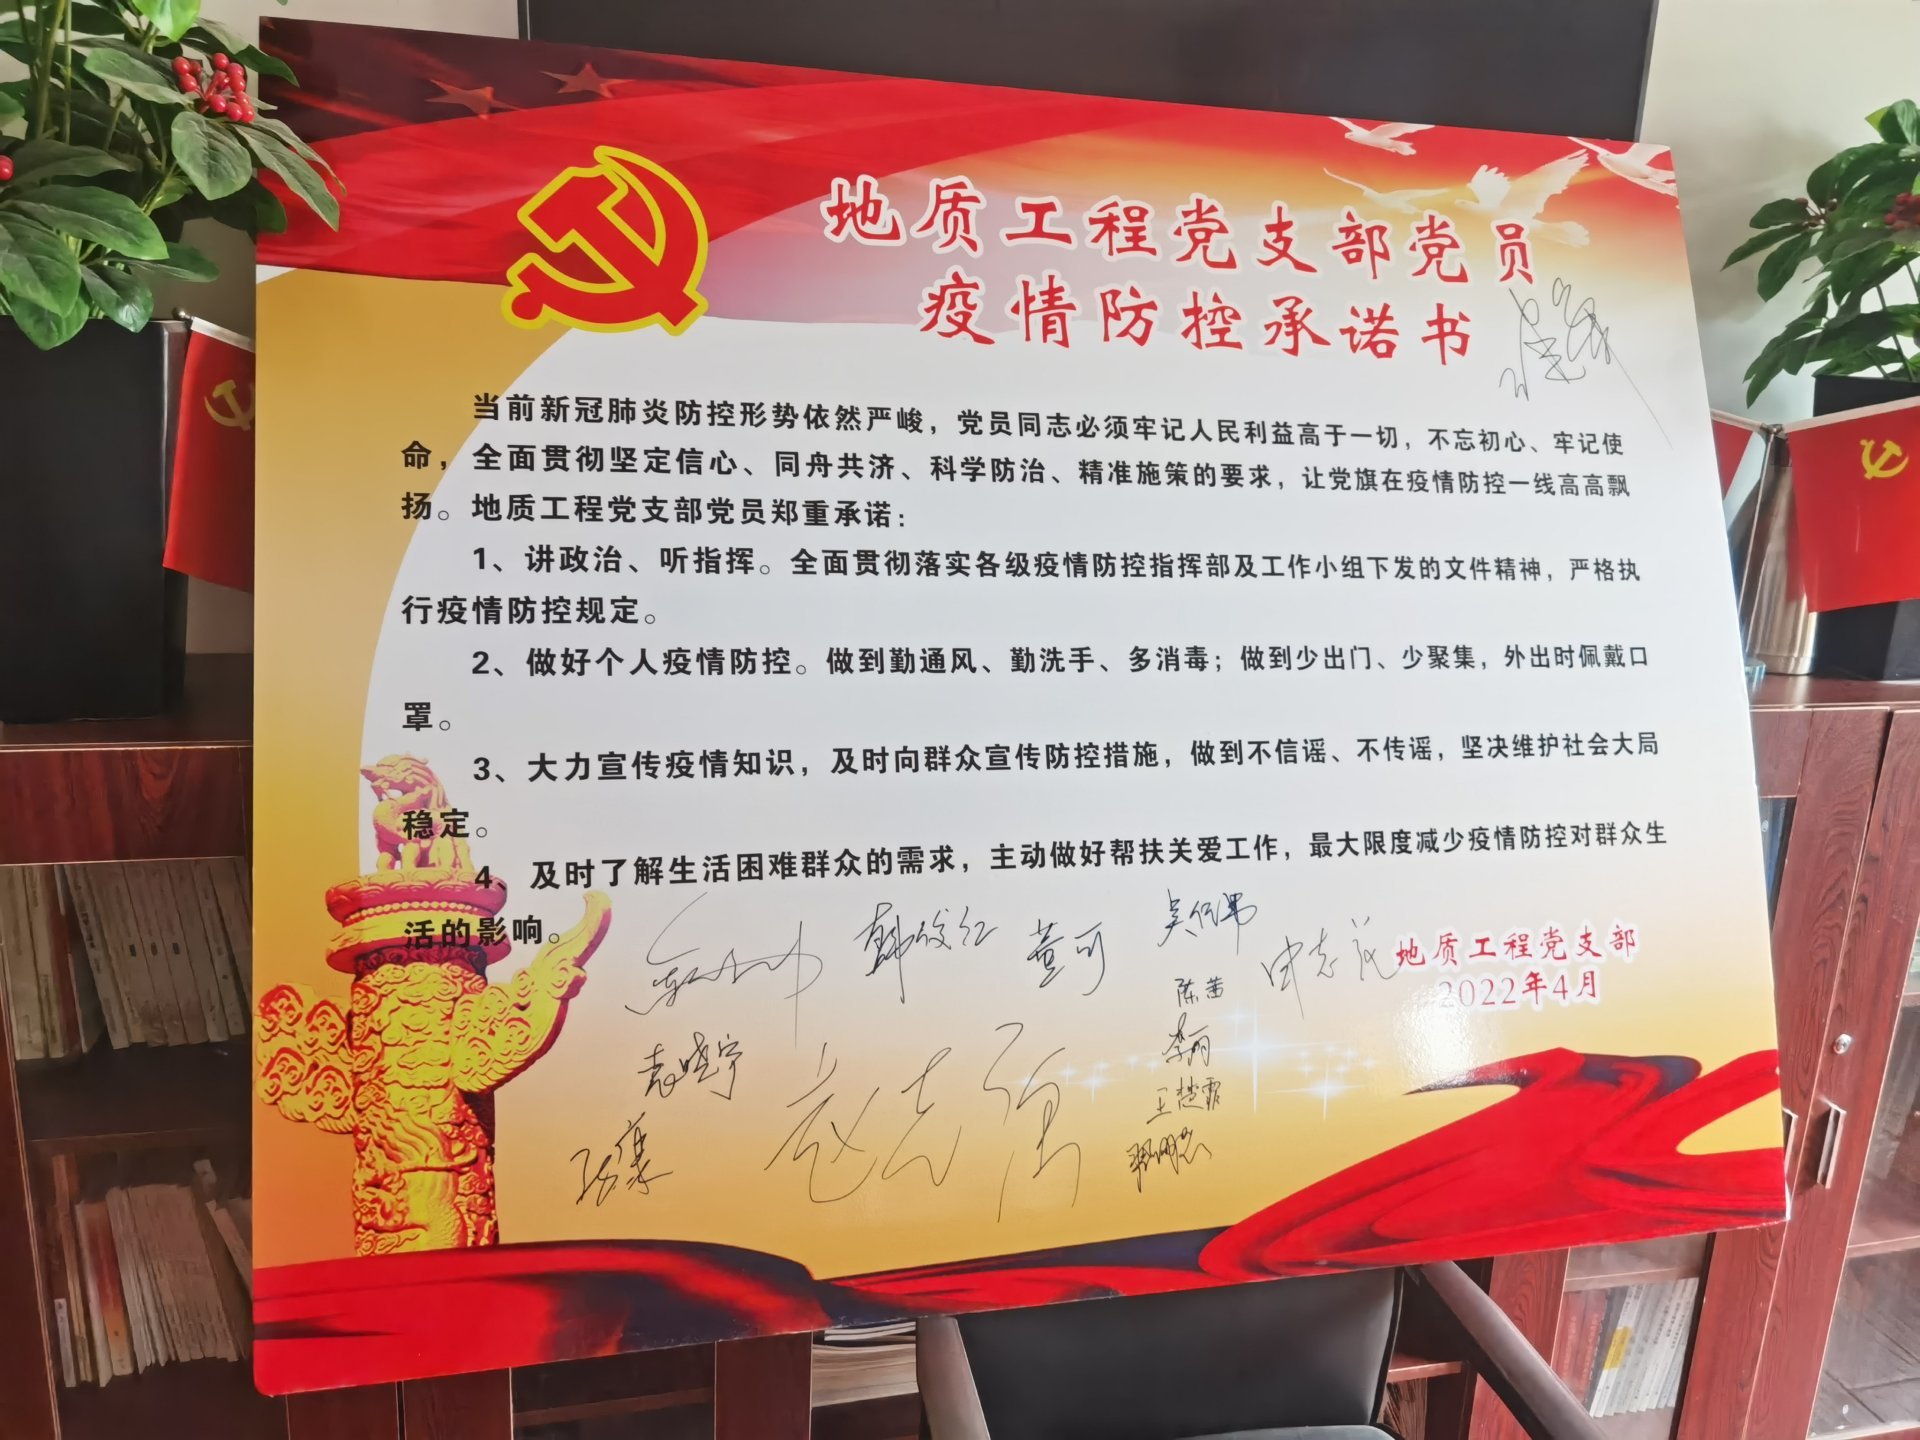 地质工程党支部党员
疫情防控承诺书
当前新冠肺炎防控形势依然严峻，党员同志必须牢记人民利益高于一切，不忘初心、牢记使
命，全面贯彻坚定信心、同舟共济、科学防治、精准施策的要求，让党旗在疫情防控一线高高飘
扬。地质工程党支部党员郑重承诺：
1、讲政治、听指挥。全面贯彻落实各级疫情防控指挥部及工作小组下发的文件精神，严格执
行疫情防控规定。
2、做好个人疫情防控。做到勤通风、勤洗手、多消毒；做到少出门、少聚集，外出时佩戴口
罩。
3、大力宣传疫情知识，及时向群众宣传防控措施，做到不信谣、不传谣，坚决维护社会大局
稳定。
4、及时了解生活困难群众的需求，主动做好帮扶关爱工作，最大限度减少疫情防控对群众生
活的影响。
董可
申志
地质工程党支部
2022年4月
陈茜
袁晓宇
李丽
王楚霏